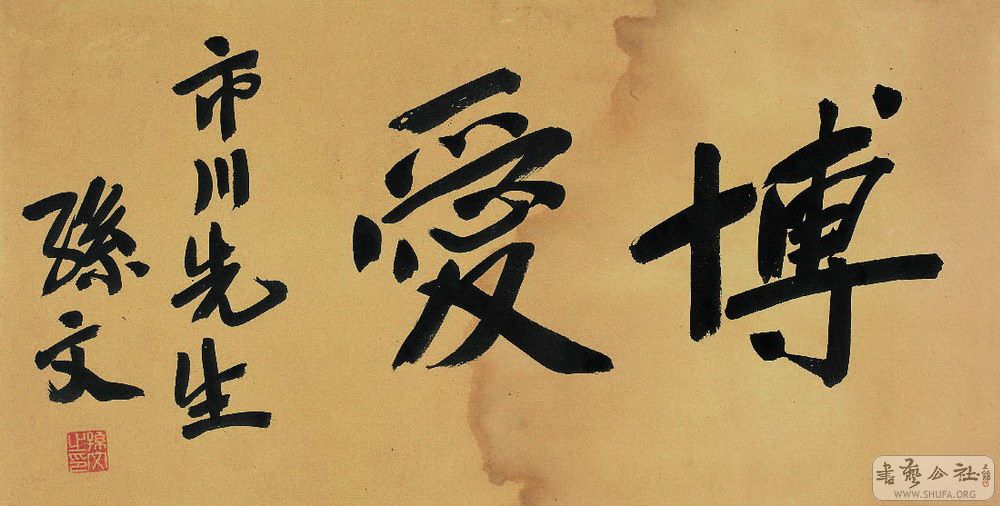 博愛
市川先生
孫文
孫文之印
書藝公社
WWW.SHUFA.ORG